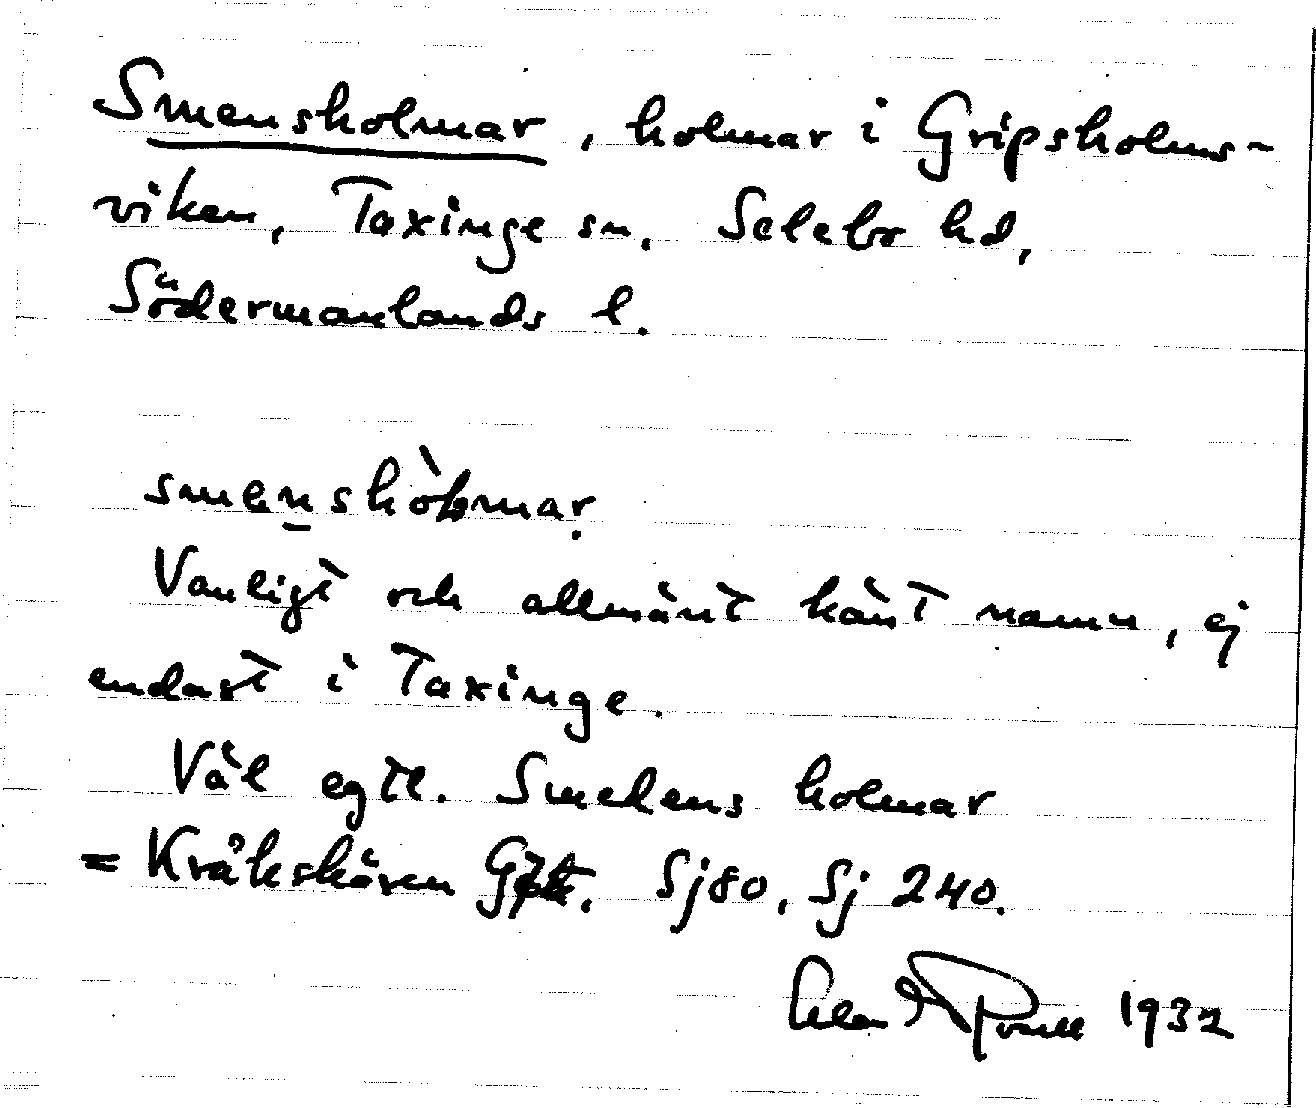 Smensholmar, holmar i Gripsholms-
viken, Taxinge sn, Selebo hd,
Södermanlands l.
smenshòlmar
Vanligt och allmänt känt namn, ej
endast i Taxinge.
Väl egtl. Smedens holmar
= Kråkskären Sj80, Sj 240.
1932